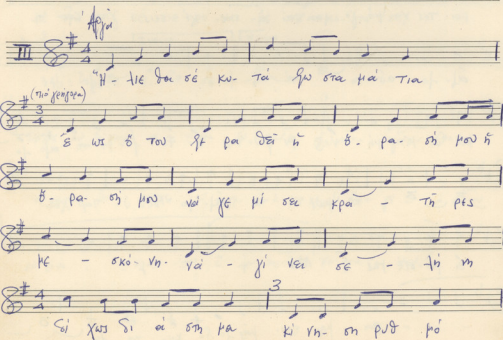 Ἀργά
III 4 4
Ἥ - λιε θα σέ κυ - τά ξω στα μά τια
(πιό γρήγορα)
3 4
Ἑ ως ὅ του ξε ρα θεῖ ἡ ὅ - ρα - σή μου ἡ
ὅ - ρα - σή μου νά γε μί σει κρα - τῆ ρες
με - σκό - νη - νά - γί νει σε - λή νη
4 4 3
δί χως δι ά στη μα κί νη - ση ρυθ μό